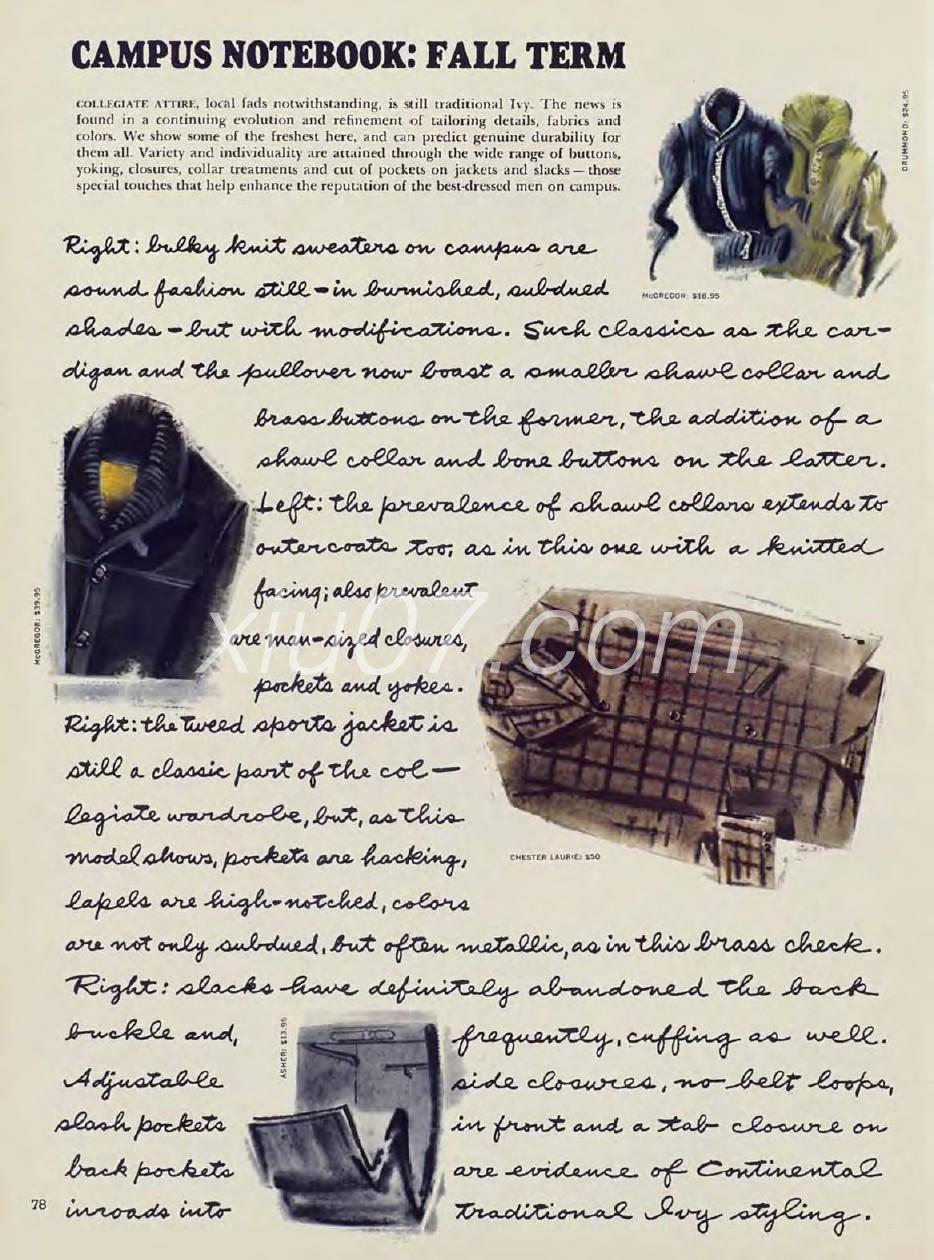 CAMPUS NOTEBOOK: FALL TERM
COLLEGIATE ATTIRE, local fads notwithstanding, is still traditional Ivy. The news is
found in a continuing evolution and refinement of tailoring details, fabrics and
colors. We show some of the freshest here, and can predict genuine durability for
them all. Variety and individuality are attained through the wide range of buttons,
yoking, closures, collar treatments and cut of pockets on jackets and slacks — those
special touches that help enhance the reputation of the best-dressed men on campus.
DRUMMOND: $24.95
McGREGOR: $18.95
Right: bulky knit sweaters on campus are
sound fashion still – in burnished, subdued
shades – but with modifications. Such classics as the car-
digan and the pullover now boast a smaller shawl collar and
brass buttons on the former, the addition of a
shawl collar and bone buttons on the latter.
Left: the prevalence of shawl collars extends to
outercoats too, as in this one with a knitted
facing; also prevalent
are man-sized closures,
pockets and yokes.
McGREGOR: $39.95
xiu07.com
Right: the tweed sports jacket is
still a classic part of the col-
legiate wardrobe, but, as this
model shows, pockets are hacking,
lapels are high-notched, colors
are not only subdued, but often metallic, as in this brass check.
CHESTER LAURIE: $50
Right: slacks have definitely abandoned the back
buckle and, frequently, cuffing as well.
Adjustable side closures, no belt loops,
slash pockets in front and a tab closure on
back pockets are evidence of Continental
inroads into traditional Ivy styling.
ASHER: $13.95
78